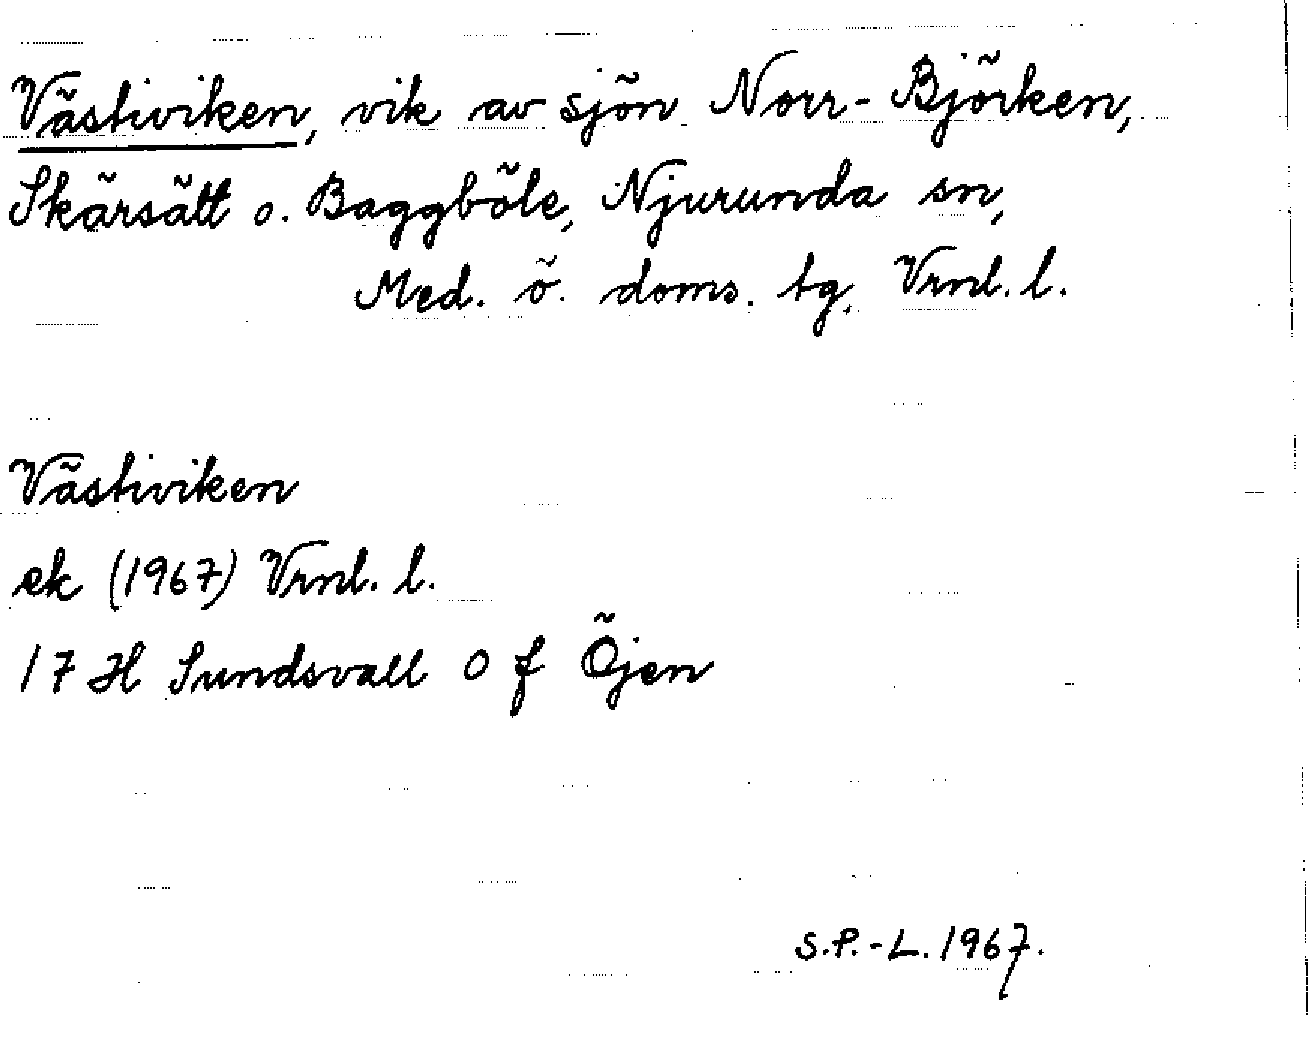 Västiviken, vik av sjön Norr-Björken,
Skärsätt o. Baggböle, Njurunda sn,
Med. ö. doms. tg. Vrnl. l.
Västiviken
ek (1967) Vrnl. l.
17 H Sundsvall O f Öjen
S.P.-L. 1967.